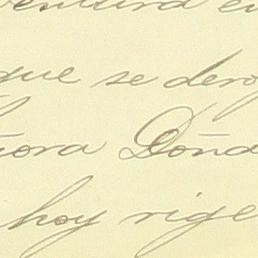 ventura en
que se dero
ñora Doñ
hoy rige